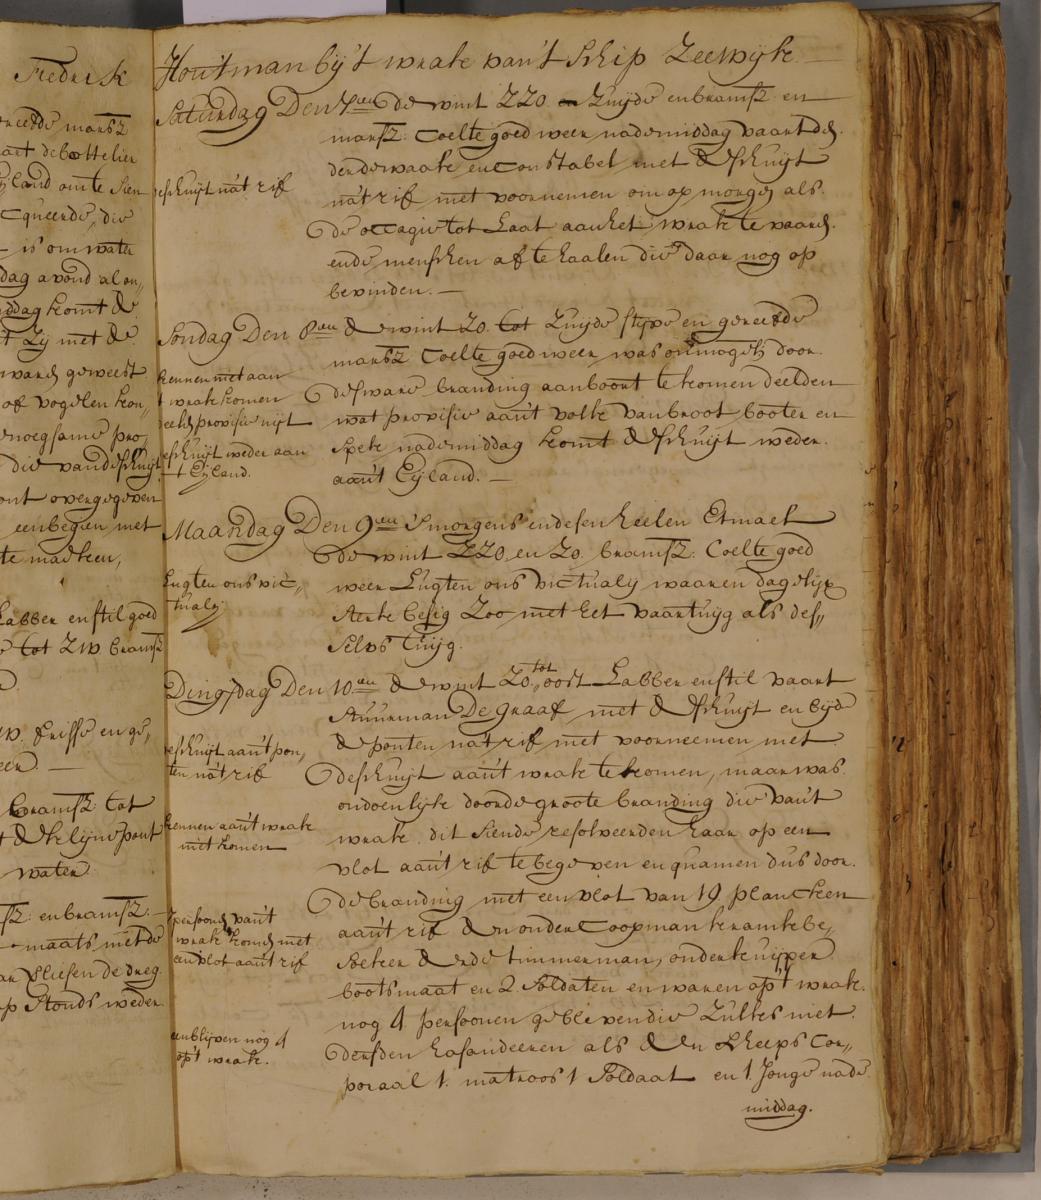 Fredrik
mars z
lact de bottelier
Eyland om te sien
cqueerde, die
is om water
dag avond al on„
middag komt de
t Zij met de
waren geweest
of vogelen kon„
genoegsame pro„
die van de schuijt
ont overgegeven
een begin met
te maeken,
Labber en stil goed
tot ZW brams z
frisse en ge„
bramsz: tot
de kleijne pont
water
sz: en bramsz:
maats met de
vliesen de dreg
op stonds weder
Houtman bij 't wrak van 't schip Zeewijk
Saturdag Den 7en de wint ZZO Zuijde en bramsz en
marsz: Coelte goed weer nademiddag vaart den
derdewaak en Constabel met de schuijt
na't rif met voornemen om op morgen als
de occagie tot laat aan het wrak te vaaren
ende menschen af te haalen die daar nog op
bevinden. —
schuijt na't rif
Sondag Den 8en de wint ZO. tot Zuijde stijve en gereefde
marsz Coelte goed weer was onmogelj door
de sware branding aanboort te komen deelden
wat provisie aan't volk van broot booter en
spek nademiddag komt de schuijt weder
aan't Eijland. —
kennen niet aan
t wrak komen
deelen provisie uijt
schuijt weder aan
t Eijland.
Maandag Den 9en Smorgens en desen heelen Etmael
de wint ZZO en ZO. bramsz: Coelte goed
weer Lugten ons victualy waaren dagelijx
sterk besig Zoo met het vaartuijg als des„
selvs tuijg.
Lugten ons vic„
tualy
Dingsdag Den 10en de wint ZO. tot oost Labber en stil vaart
stuurman De Graaf met de schuijt en bijde
de ponten na't rif met voorneemen met
de schuijt aan't wrak te komen, maar was
ondoenlijk door de groote branding die van't
wrak. dit siende resolveerden haar op een
vlot aan't rif te begeven en quamen dus door
de branding met een vlot van 19 plancken
aan't rif den ondercoopman kranke be„
soeker derde timmerman, onderkuijper
bootsmaat en 2 soldaten en waren op't wrak
nog 4 persoonen gebleven die Zulks niet
dersden hasardeeren als den scheeps Cor„
poraal 1 matroos 1 soldaat en 1 Jonge nade
middag.
schuijt aan't pon„
ten na't rif
kennen aan't wrak
niet komen
7 persoonen van't
wrak komen met
een vlot aan't rif
en blijven nog 4
op't wrak.